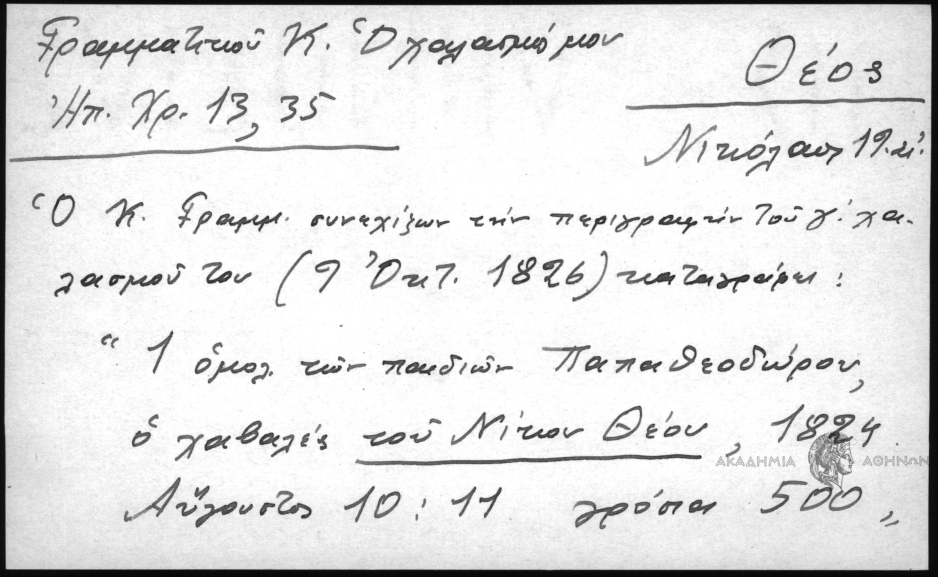 Γραμματικοῦ Κ. Ὁ χαλασμός μου
Ἠπ. Χρ. 13, 35
Θέος
Νικόλαος 19.αἰ.
Ὁ Κ. Γραμμ. συνεχίζων τὴν περιγραφὴν τοῦ γ΄. χα-
λασμοῦ του (9 Ὀκτ. 1826) καταγράφει:
"1 ὁμολ. τῶν παιδιῶν Παπαθεοδώρου,
ὁ χαβαλές τοῦ Νίκου Θέου, 1824
Αὔγουστος 10:11 γρόσια 500„
ΑΚΑΔΗΜΙΑ ΑΘΗΝΩΝ